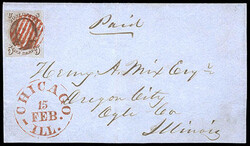 Paid
Henry A. Mix Esqr
Oregon City
Ogle Co
Illinois
CHICAGO
15
FEB.
ILL.
5 5